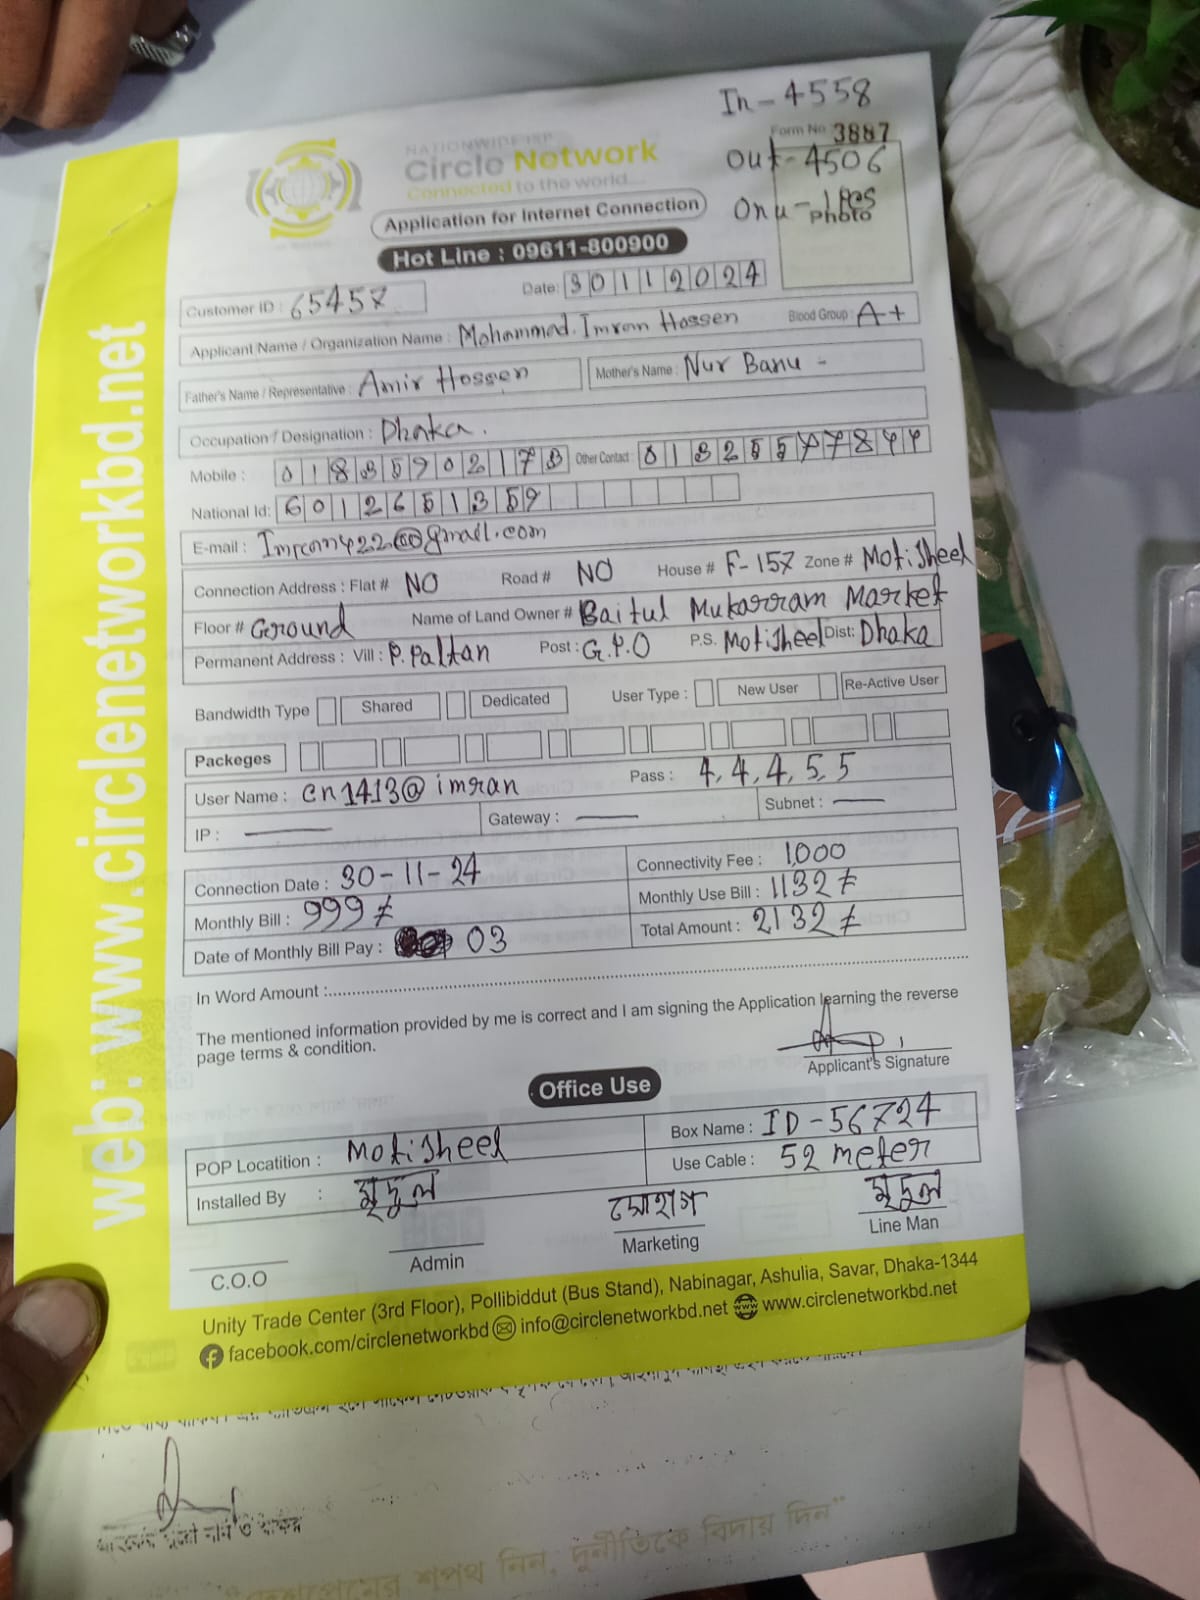 In - 4558
NATIONWIDE ISP
Circle Network
Connected to the world...
Form No 3887
Out - 4506
Onu - 1 Pcs
Photo
Application for Internet Connection
Hot Line : 09611-800900
Customer ID : 65457
Date: 30112024
Applicant Name / Organization Name : Mohammad. Imran Hossen Blood Group : A+
Father's Name / Representative : Amir Hossen Mother's Name : Nur Banu -
Occupation / Designation : Dhaka.
Mobile : 01835902173 Other Contact :
National Id: 6012651359
E-mail : @gmail.com
Connection Address : Flat # NO Road # NO House # F-157 Zone # Motisheel
Floor # Ground Name of Land Owner # Baitul Mukarram Market
Permanent Address : Vill : P. Paltan Post : G.P.O P.S. Motisheel Dist: Dhaka
Bandwidth Type Shared Dedicated User Type : New User Re-Active User
Packeges
User Name : cn1413@imran Pass : 4, 4, 4, 5, 5
IP : — Gateway : — Subnet : —
Connection Date : 30-11-24 Connectivity Fee : 1000
Monthly Bill : 999/= Monthly Use Bill : 1132/=
Date of Monthly Bill Pay : 03 Total Amount : 2132/=
In Word Amount :
The mentioned information provided by me is correct and I am signing the Application learning the reverse
page terms & condition.
Applicant's Signature
Office Use
POP Locatition : Motisheel Box Name : ID-56724
Use Cable : 52 meter
Installed By : মৃদুল
সোহাগ মৃদুল
C.O.O Admin Marketing Line Man
Unity Trade Center (3rd Floor), Pollibiddut (Bus Stand), Nabinagar, Ashulia, Savar, Dhaka-1344
facebook.com/circlenetworkbd info@circlenetworkbd.net www.circlenetworkbd.net
web: www.circlenetworkbd.net
শপথ নিন, দুর্নীতিকে বিদায় দিন"